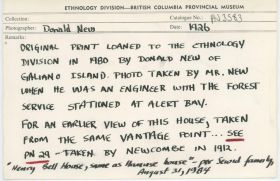 ETHNOLOGY DIVISION—BRITISH COLUMBIA PROVINCIAL MUSEUM
Collection: Catalogue No.: PN3583
Photographer: Donald New Date: 1926
Remarks:
ORIGINAL PRINT LOANED TO THE ETHNOLOGY
DIVISION IN 1980 BY DONALD NEW OF
GALIANO ISLAND. PHOTO TAKEN BY MR. NEW
WHEN HE WAS AN ENGINEER WITH THE FOREST
SERVICE STATIONED AT ALERT BAY.
FOR AN EARLIER VIEW OF THIS HOUSE, TAKEN
FROM THE SAME VANTAGE POINT... SEE
PN 29 - TAKEN BY NEWCOMBE IN 1912.
"Henry Bell House; same as house" - per Seward family,
August 31, 1984